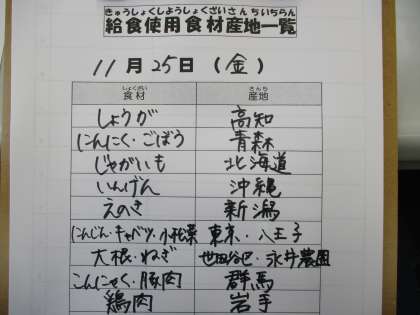 きゅうしょくしようしょくざいさんちいちらん
給食使用食材産地一覧
11月25日(金)
しょくざい さんち
食材 産地
しょうが 高知
にんにく・ごぼう 青森
じゃがいも 北海道
いんげん 沖縄
えのき 新潟
にんじん・キャベツ・小松菜 東京・八王子
大根・ねぎ 世田谷・永井農園
こんにゃく・豚肉 群馬
鶏肉 岩手